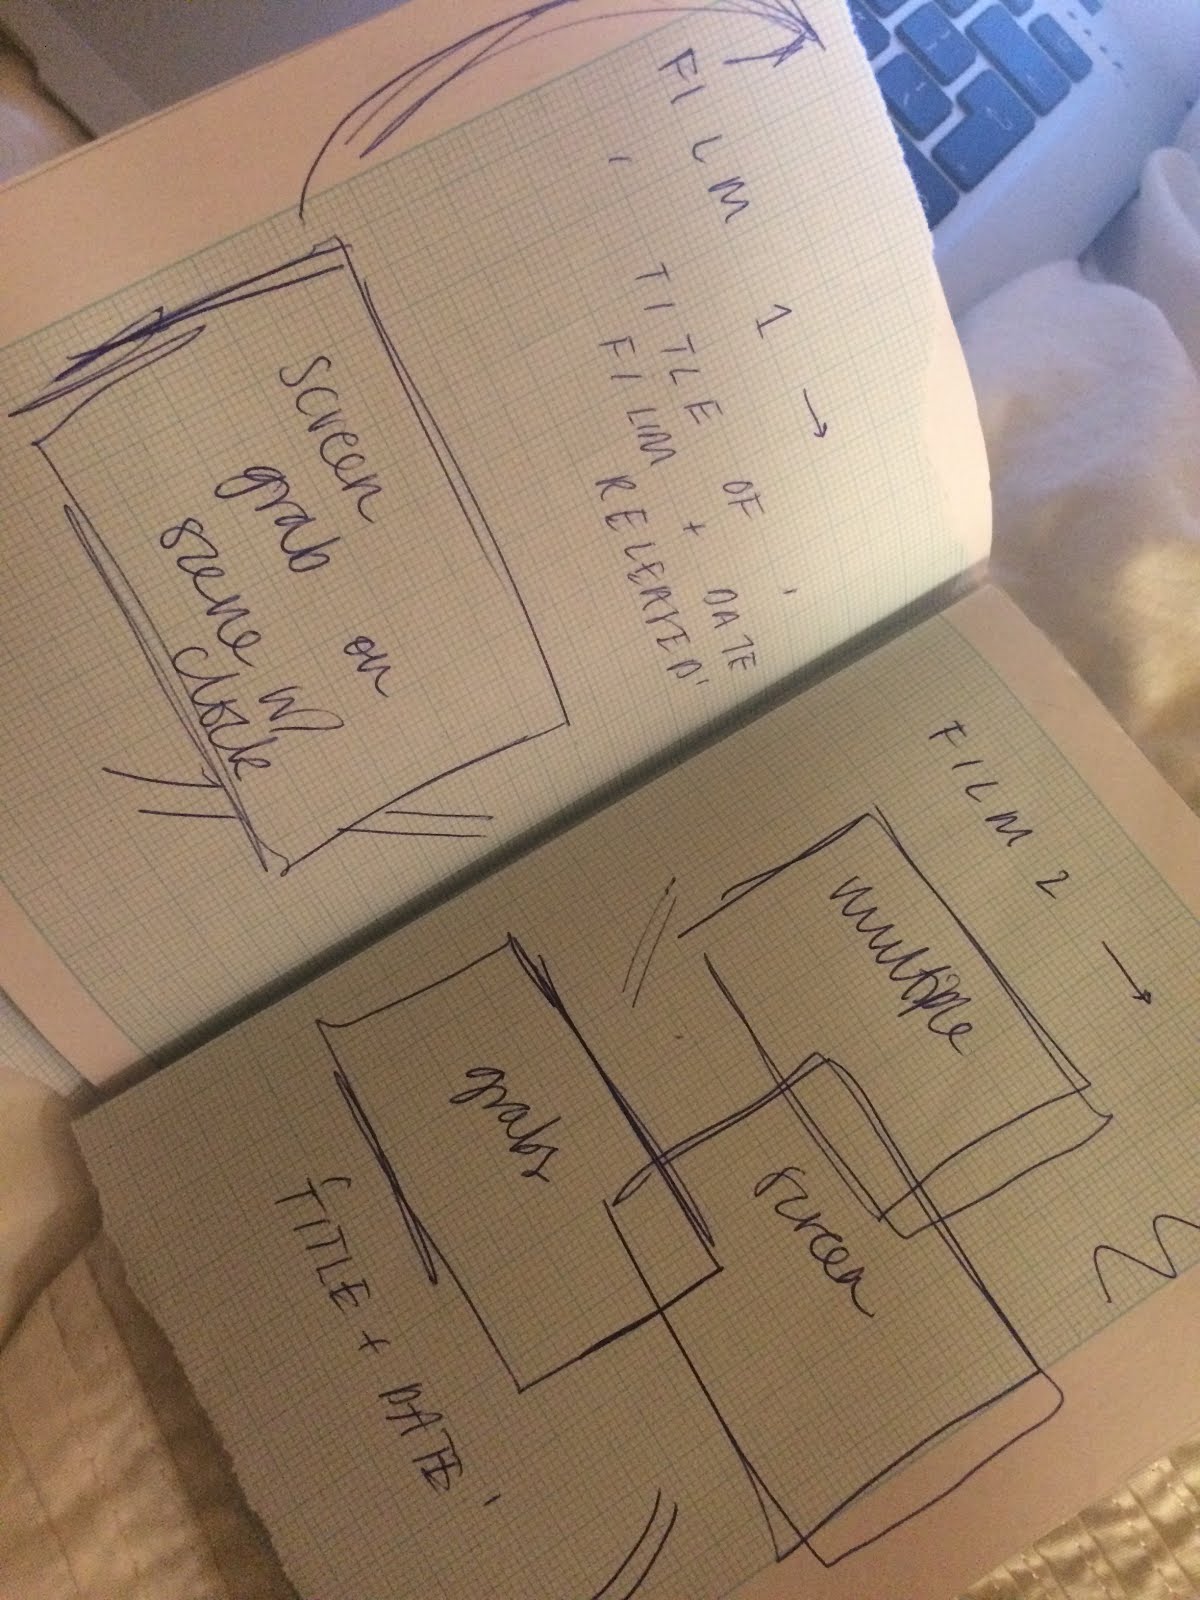 FILM 1 →
' TITLE OF '
FILM + DATE
RELEASED'
screen
grab on
scene w/
clock
FILM 2 →
multiple
screen
grabs
'TITLE + DATE'